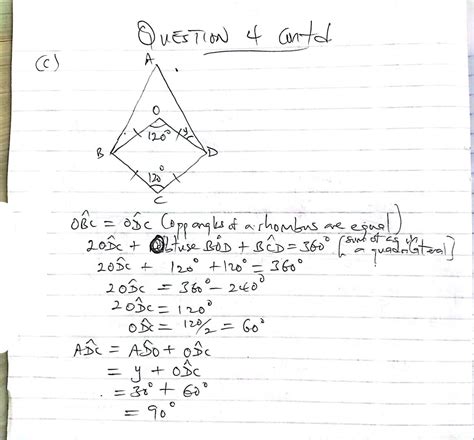 QUESTION 4 Contd
(c)
A
O
120° y
B D
120°
C
OB̂C = OD̂C (opp angles of a rhombus are equal)
2OD̂C + Obtuse BÔD + BĈD = 360° [sum of ∠s in a quadrilateral]
2OD̂C + 120° + 120° = 360°
2OD̂C = 360° - 240°
2OD̂C = 120°
OD̂C = 120/2 = 60°
AD̂C = AD̂O + OD̂C
= y + OD̂C
= 30° + 60°
= 90°